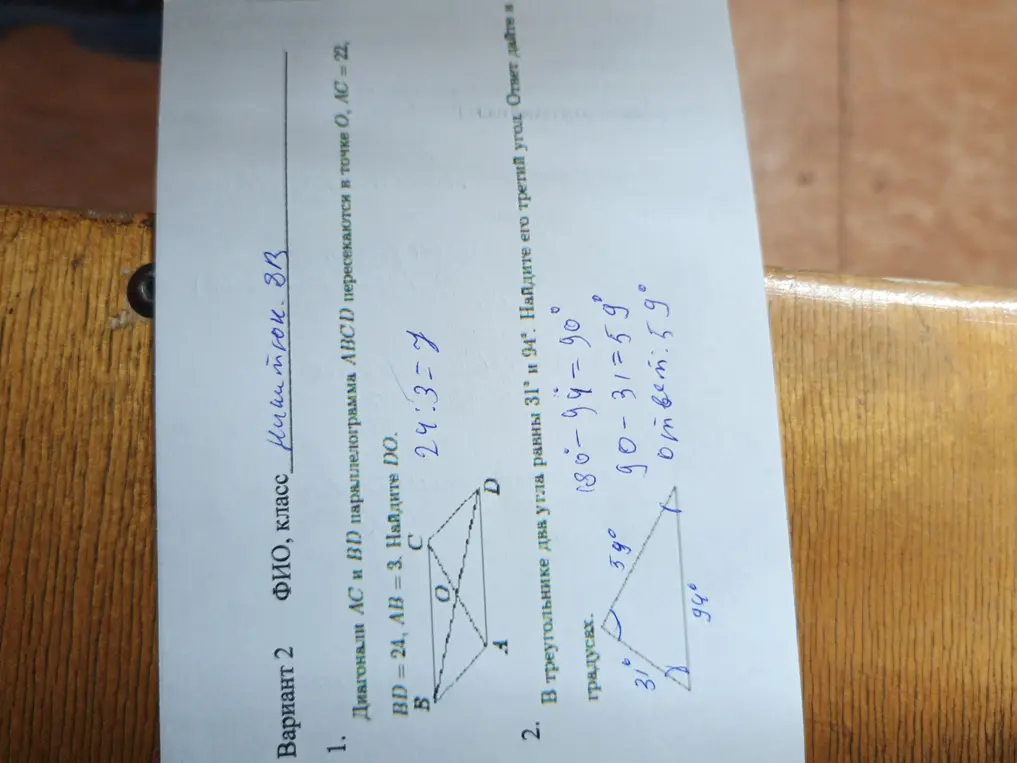 Вариант 2 ФИО, класс 8В
1. Диагонали AC и BD параллелограмма ABCD пересекаются в точке O, AC = 22,
BD = 24, AB = 3. Найдите DO.
B C
O
A D
24:3=7
2. В треугольнике два угла равны 31° и 94°. Найдите его третий угол. Ответ дайте в
градусах.
180°-94=90°
90-31=59°
ответ:59°
31° 59°
94°